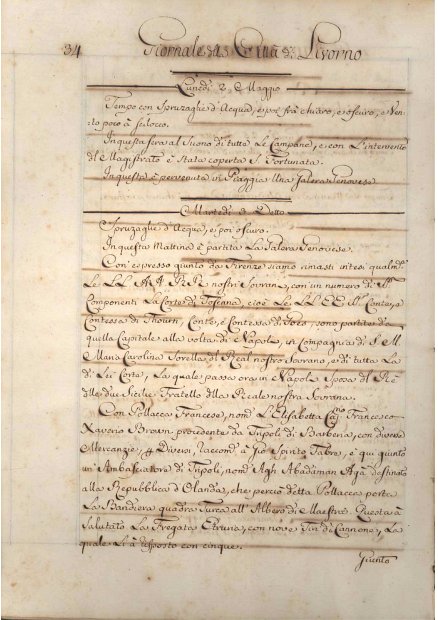 34 Giornale della Città di Livorno
Lunedì 2. Maggio
Tempo con Spruzaglie d'Acqua, e poi frà chiaro, e oscuro, e Ven-
to poco à scilocco.
In questa sera al Suono di tutte Le Campane, e con L'intervento
del Magistrato è Stata coperta S. Fortunata.
In questa è pervenuta in Piaggia Una Galera Genovese
Martedì 3. Detto
Spruzaglie d'Acqua, e poi oscuro.
In questa Mattina è partita La Galera Genovese.
Con espresso giunto da Firenze siamo rimasti intesi qualm.te
Le LL. AA. RR. nostri Sovrani, con un numero di
Componenti La Corte di Toscana, cioè Le LL. EE. Il Conte, e
Contessa di Thourn, Conte, e Contessa di sono partite da
quella Capitale alla volta di Napoli, in Compagnia di S. M.
Maria Carolina Sorella del Real nostro Sovrano, e di tutta La
di Lei Corte, La quale passa ora in Napoli Sposa del Rè
delle due Sicilie Fratello della Reale nostra Sovrana.
Con Pollacca Francese, nom.a L'Elisabetta Cap.no Francesco
Xaverio Brown, procedente da Tripoli di Barberia, con diverse
Mercanzie, & Diversi, raccom.a à Gio Spirito Fabre, è qui giunto
un'Ambasciatore di Tripoli, nom.o Agh Abadaman Agà destinato
alla Repubblica d'Olanda, che perciò detta Pollacca porta
La Bandiera quadra Turca all'Albero di Maestro. Questa à
Salutato La Fregata Etruria, con nove Tiri di Cannone, La
quale Li à risposto con cinque.
Giunto